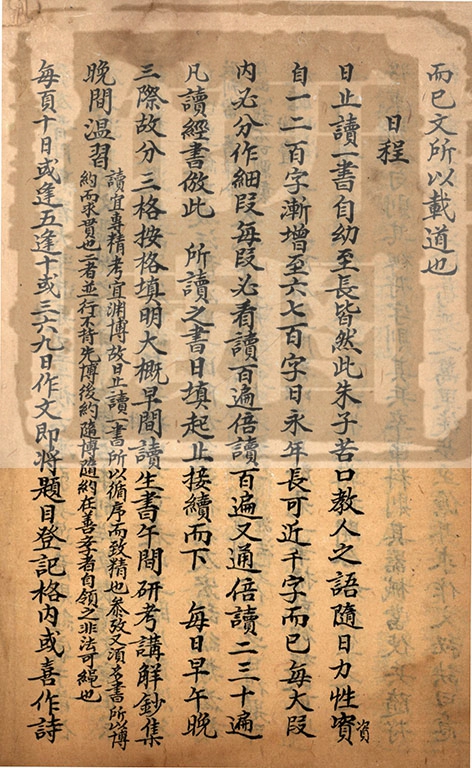 而已文所以載道也
日程
日止讀一書自幼至長皆然此朱子苦口教人之語隨日力性寳資
自一二百字漸增至六七百字日永年長可近千字而已每大段
內必分作細段每段必看讀百遍倍讀百遍又通倍讀二三十遍
凡讀經書倣此 所讀之書日填起止接續而下 每日早午晚
三際故分三格按格填明大概早間讀生書午間研考講解鈔集
晚間温習
讀宜專精考宜渊博故日止讀一書所以循序而致精也叅攷又須多書所以博
約而求貫也二者並行不悖先博後約隨博隨約在善孝者自領之非法可繩也
每頁十日或逢五逢十或三六九日作文即將題目登記格內或喜作詩